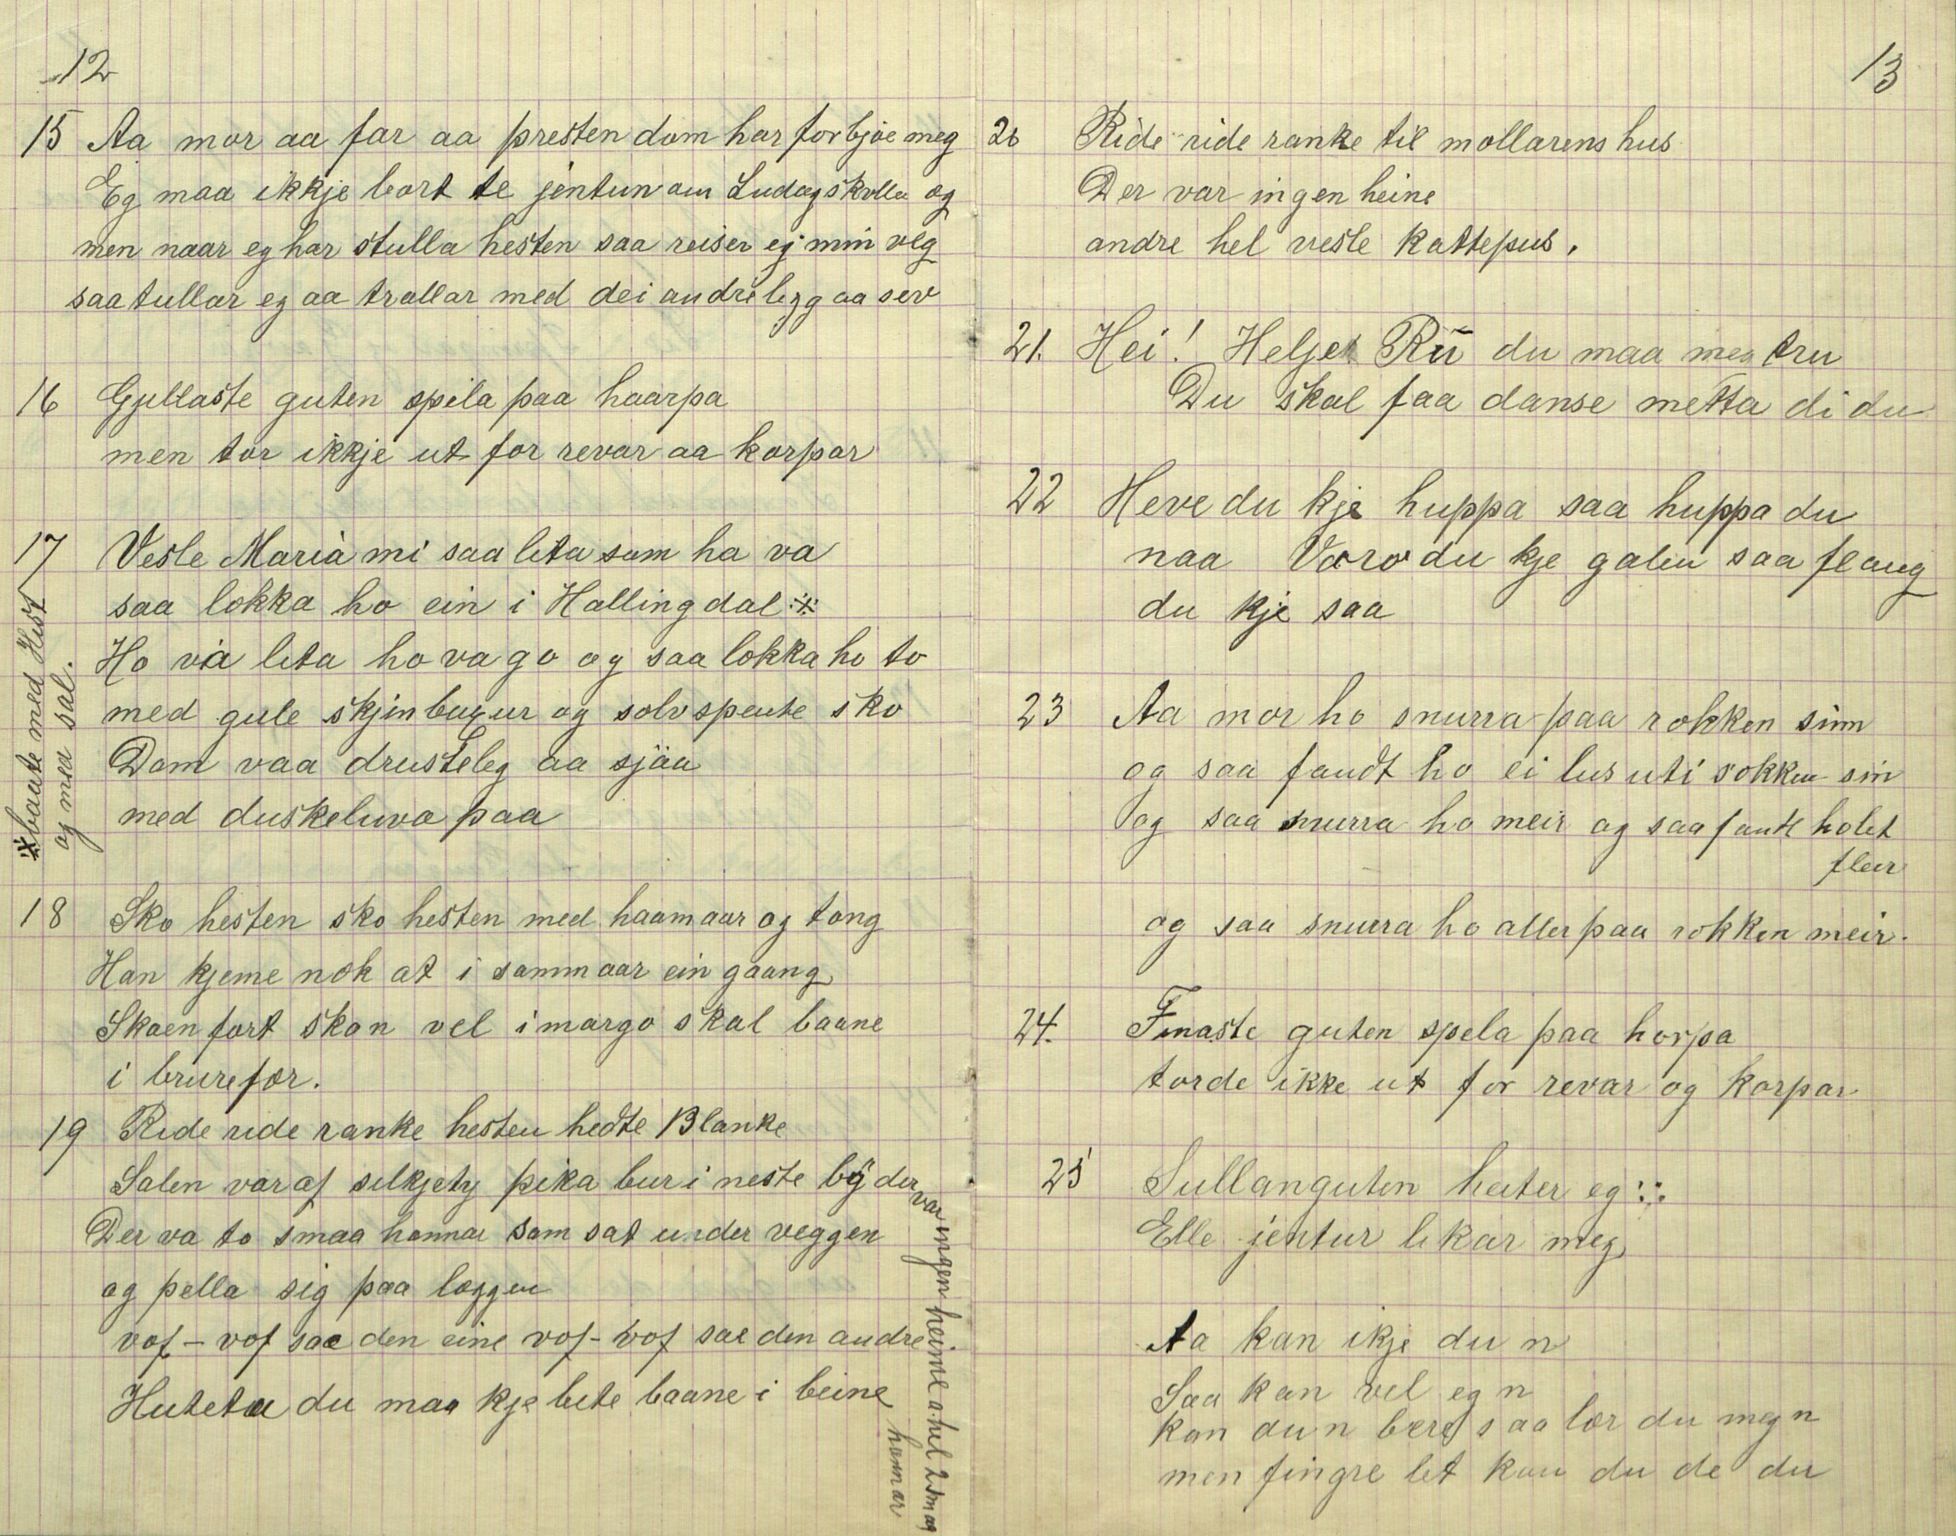 12
15 Aa mor aa far aa presten dom har forbjoe meg
Eg maa ikkje bort te jentun om Ludagskvlla og
men naar eg har stulla hesten saa reiser eg min veg
saa tullar eg aa trallar med dei andre legg aa sev
16 Gjillaste guten spila paa haarpa
men tor ikkje ut for revar aa korpar
17 Vesle Maria mi saa lita som ha va
saa lokka ho ein i Hallingdal ※
Ho va lita ho va go og saa lokka ho to
med gule skjinbuxur og solvspente sko
Dom vaa drusteleg aa sjaa
med duskeluva paa
※ baate med Hest
og med sal.
18 Sko hesten sko hesten med haamaar og tong
Han kjeme nok at i sammaar ein gaang
Skoen fort skon vel i margo skal baane
i brurefær.
19 Ride ride ranke hesten hedte Blanke
Salen var af silkjety pika bur i neste by der
var ingen heime a hel 2 smaa
honnar
Der va to smaa honnar som sat under veggen
og pella sig paa læggen
vof – vof sae den eine vof – vof sae den andre
Hutetu du maa kje bite baane i beine
13
20 Ride ride ranke til mollarens hus
Der var ingen heine
andre hel vesle kattepus.
21. Hei! Helje Rū du maa meg tru
Du skal faa danse metta di du
22 Heve du kje huppa saa huppa du
naa Voro du kje galen saa flaug
du kje saa
23 Aa mor ho snurra paa rokken sinn
og saa fandt ho ei lus uti sokken sin
og saa snurra ho meir og saa fant holet
fleir
og saa snurra ho aller paa rokken meir.
24. Finaste guten spela paa horpa
torde ikke ut for revar og korpar
25 Sullanguten heiter eg :::
Elle jentur likar meg
Aa kan ikje du n
Saa kan vel eg n
kan du n bære saa lær du meg n
men fingre let kan du de du